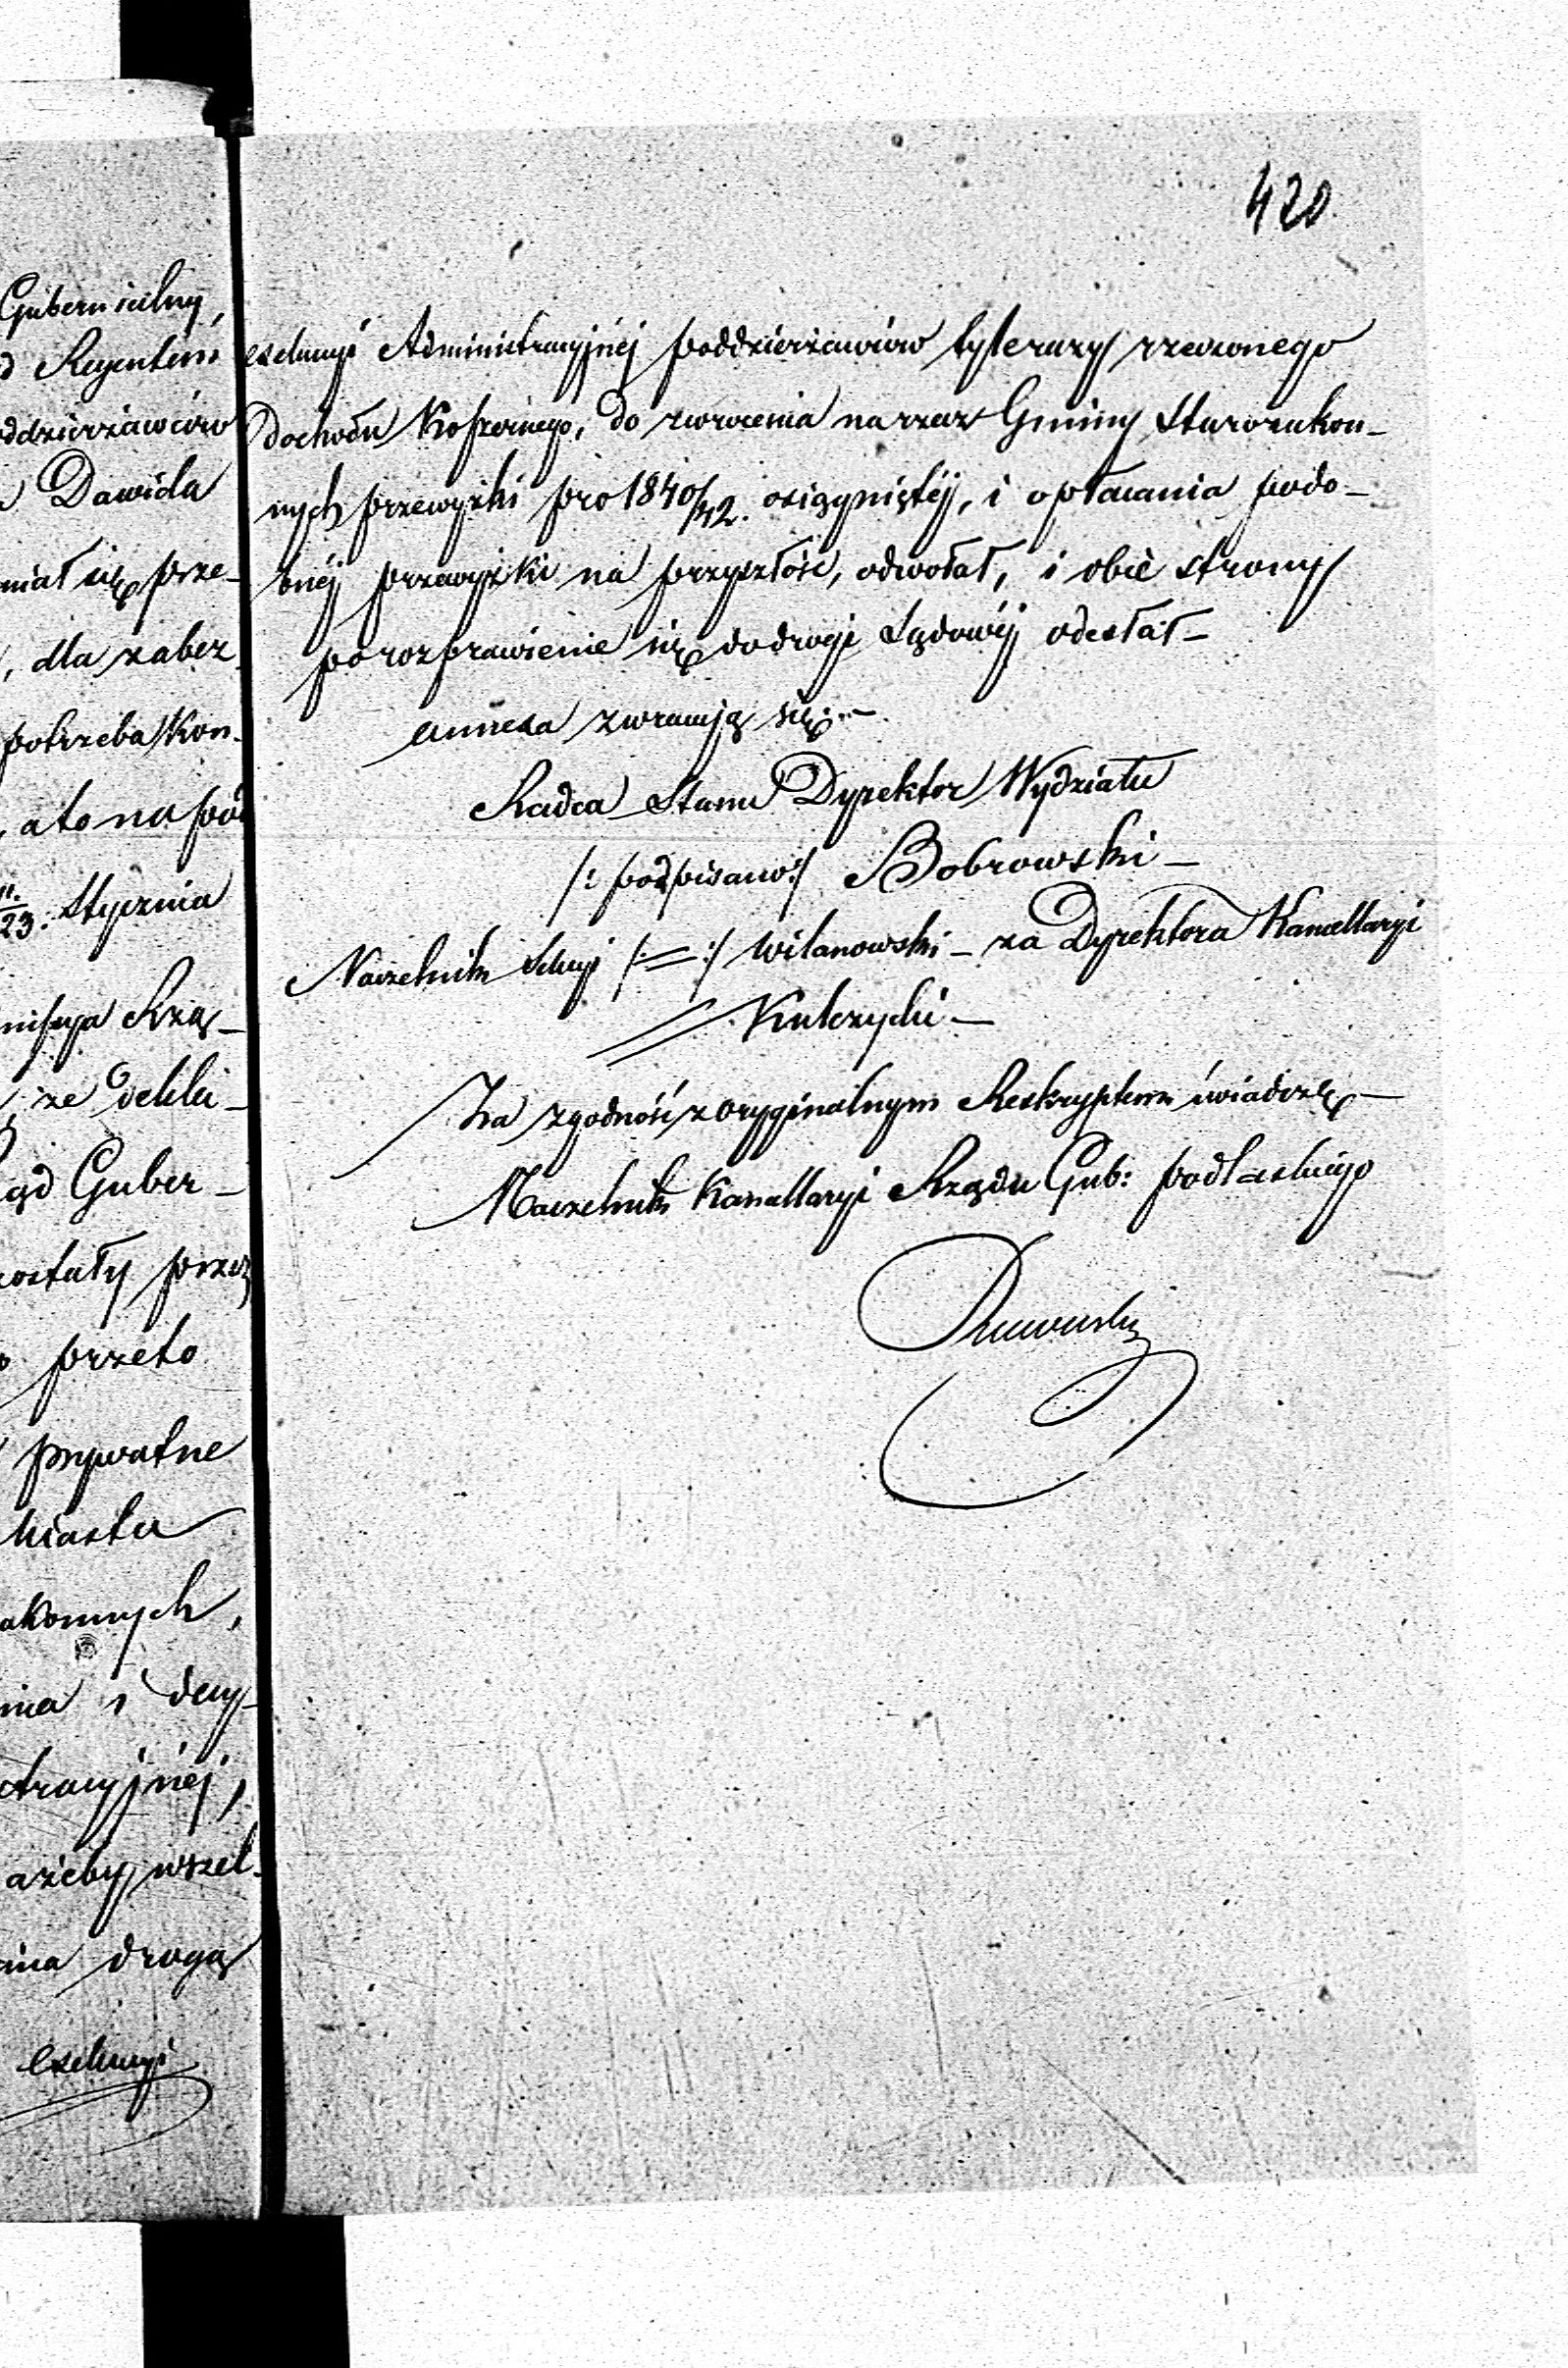 420
Gubernialny,
d Regentem
oddzierżawców
Dawida
miał się prze-
, dla zabez-
potrzeba kon-
, a to na pod
11/23. Stycznia
missya Rzą-
że dekla-
ąd Guber-
zostały przez
przeto
prywatne
Miasta
akonnych,
nia i decy-
stracyjnéj,
ażeby wszel-
nia drogą
exekucyi
exekucyi Administracyjnéj poddzierżawców tyle razy rzeczonego
Dochodu Koszernego, do zwrócenia na rzecz Gminy Starozakon-
nych przewyżki pro 1840/42. osiągniętéj, i opłacania podo-
bnéj przewyżki na przyszłość, odwołał, i obie strony
po rozprawienie się do drogi Sądowéj odesłał –
annexa zwracają się. –
Radca Stanu Dyrektor Wydziału
/: podpisano :/ Bobrowski –
Naczelnik Sekcyi /: = :/ Wilanowski – za Dyrektora Kancellaryi
// Kulczycki –
Za zgodność z oryginalnym Reskryptem świadczę –
Naczelnik Kancellaryi Rządu Gub: Podlaskiego